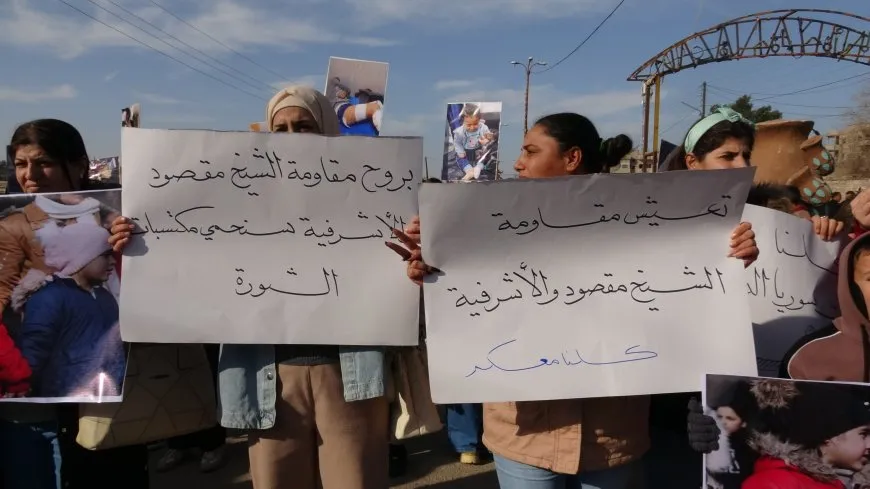 بروح مقاومة الشيخ مقصود
الأشرفية سنحمي مكتسبات
الثورة
تعيش مقاومة
الشيخ مقصود والأشرفية
كلنا معكم
سوريا